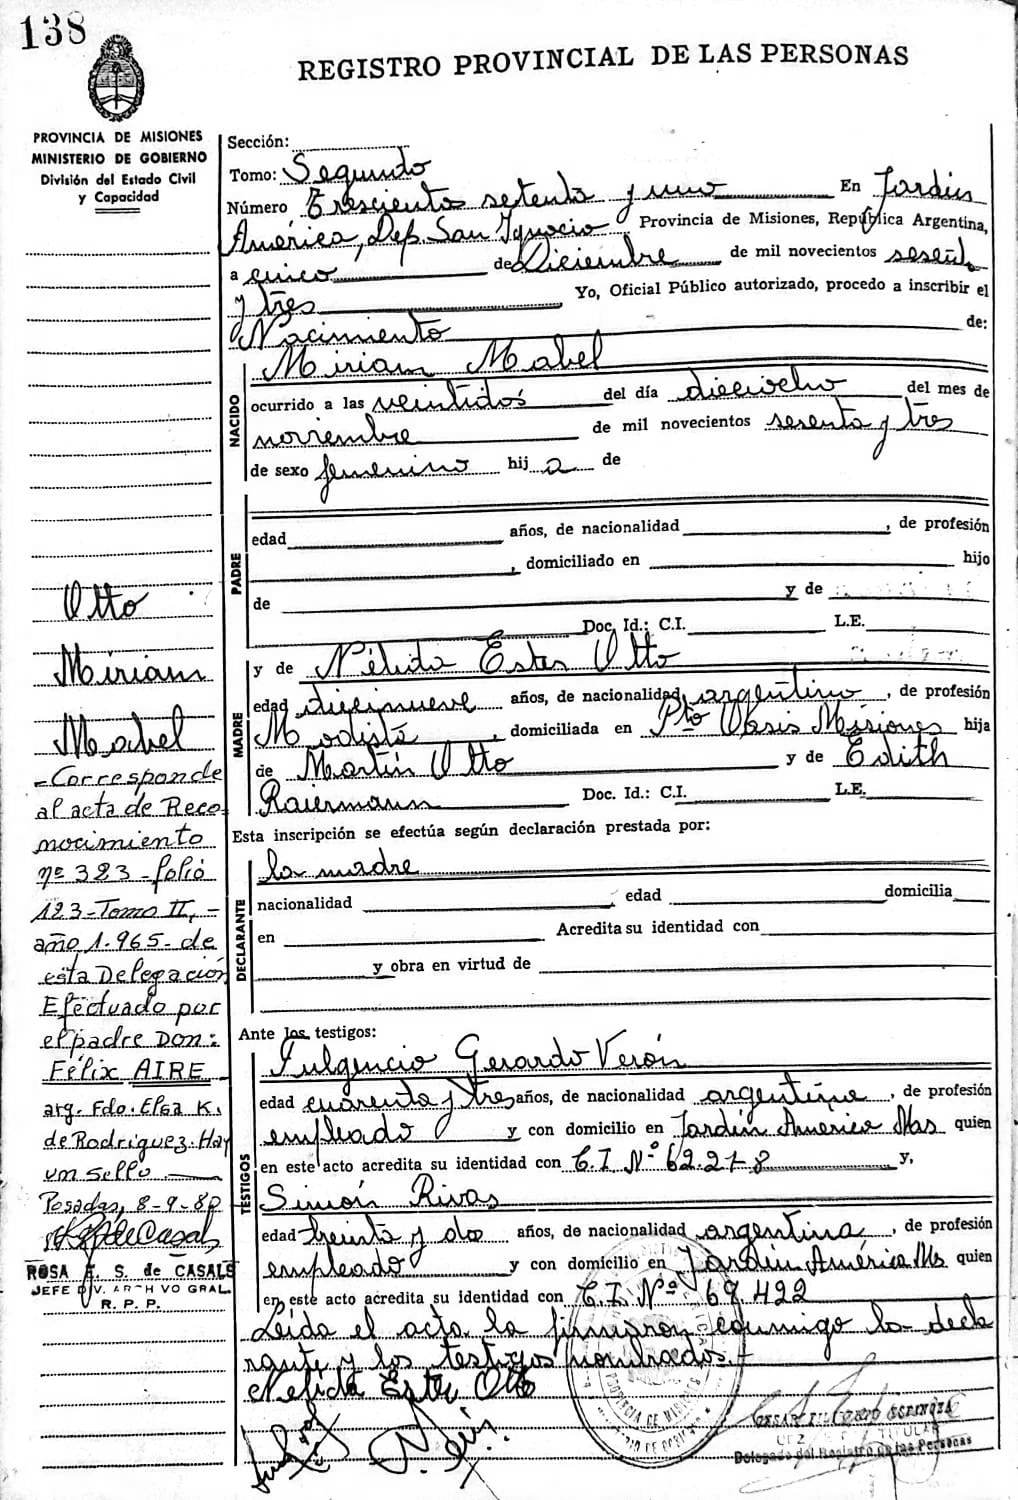 138
REGISTRO PROVINCIAL DE LAS PERSONAS
PROVINCIA DE MISIONES
MINISTERIO DE GOBIERNO
División del Estado Civil
y Capacidad
Sección:
Tomo: Segundo
Número Trescientos setenta y uno En Jardin
América, Dep. San Ignacio Provincia de Misiones, República Argentina,
a cinco de Diciembre de mil novecientos sesenta
y tres Yo, Oficial Público autorizado, procedo a inscribir el
Nacimiento de:
NACIDO
Miriam Mabel
ocurrido a las veintidós del día dieciocho del mes de
noviembre de mil novecientos sesenta y tres
de sexo femenino hij a de
PADRE
edad años, de nacionalidad , de profesión
, domiciliado en hijo
de y de
Doc. Id.: C.I. L.E.
MADRE
y de Nélida Ester Otto
edad diecinueve años, de nacionalidad argentino , de profesión
Modista , domiciliada en Pto Oasis Misiones hija
de Martín Otto y de Edith
Raiermann Doc. Id.: C.I. L.E.
Esta inscripción se efectúa según declaración prestada por:
DECLARANTE
la madre
nacionalidad , edad domicilia
en Acredita su identidad con
y obra en virtud de
Ante los testigos:
TESTIGOS
Fulgencio Gerardo Verón
edad cuarenta y tres años, de nacionalidad argentina , de profesión
empleado y con domicilio en Jardín América Mns quien
en este acto acredita su identidad con C.I. Nº 62.278 y,
Simón Rivas
edad treinta y dos años, de nacionalidad argentina , de profesión
empleado y con domicilio en Jardín América Ms quien
en este acto acredita su identidad con C.I. Nº 69.422
Leída el acta la firmaron conmigo la decla
rante y los testigos nombrados.-
Nelida Ester Otto
Otto
Miriam
Mabel
-Corresponde
al acta de Reco-
nocimiento
nº 323-folio
123-Tomo II,-
año 1.965- de
esta Delegación
Efectuado por
el padre Don:
Félix AIRE
arg. Fdo. Elsa K.
de Rodríguez. Hay
un sello
Posadas, 8-9-80
ROSA E. S. de CASALS
JEFE DIV. ARCHIVO GRAL.
R. P. P.
PROVINCIA DE MISIONES
TITULAR
Delegado del Registro de las Personas